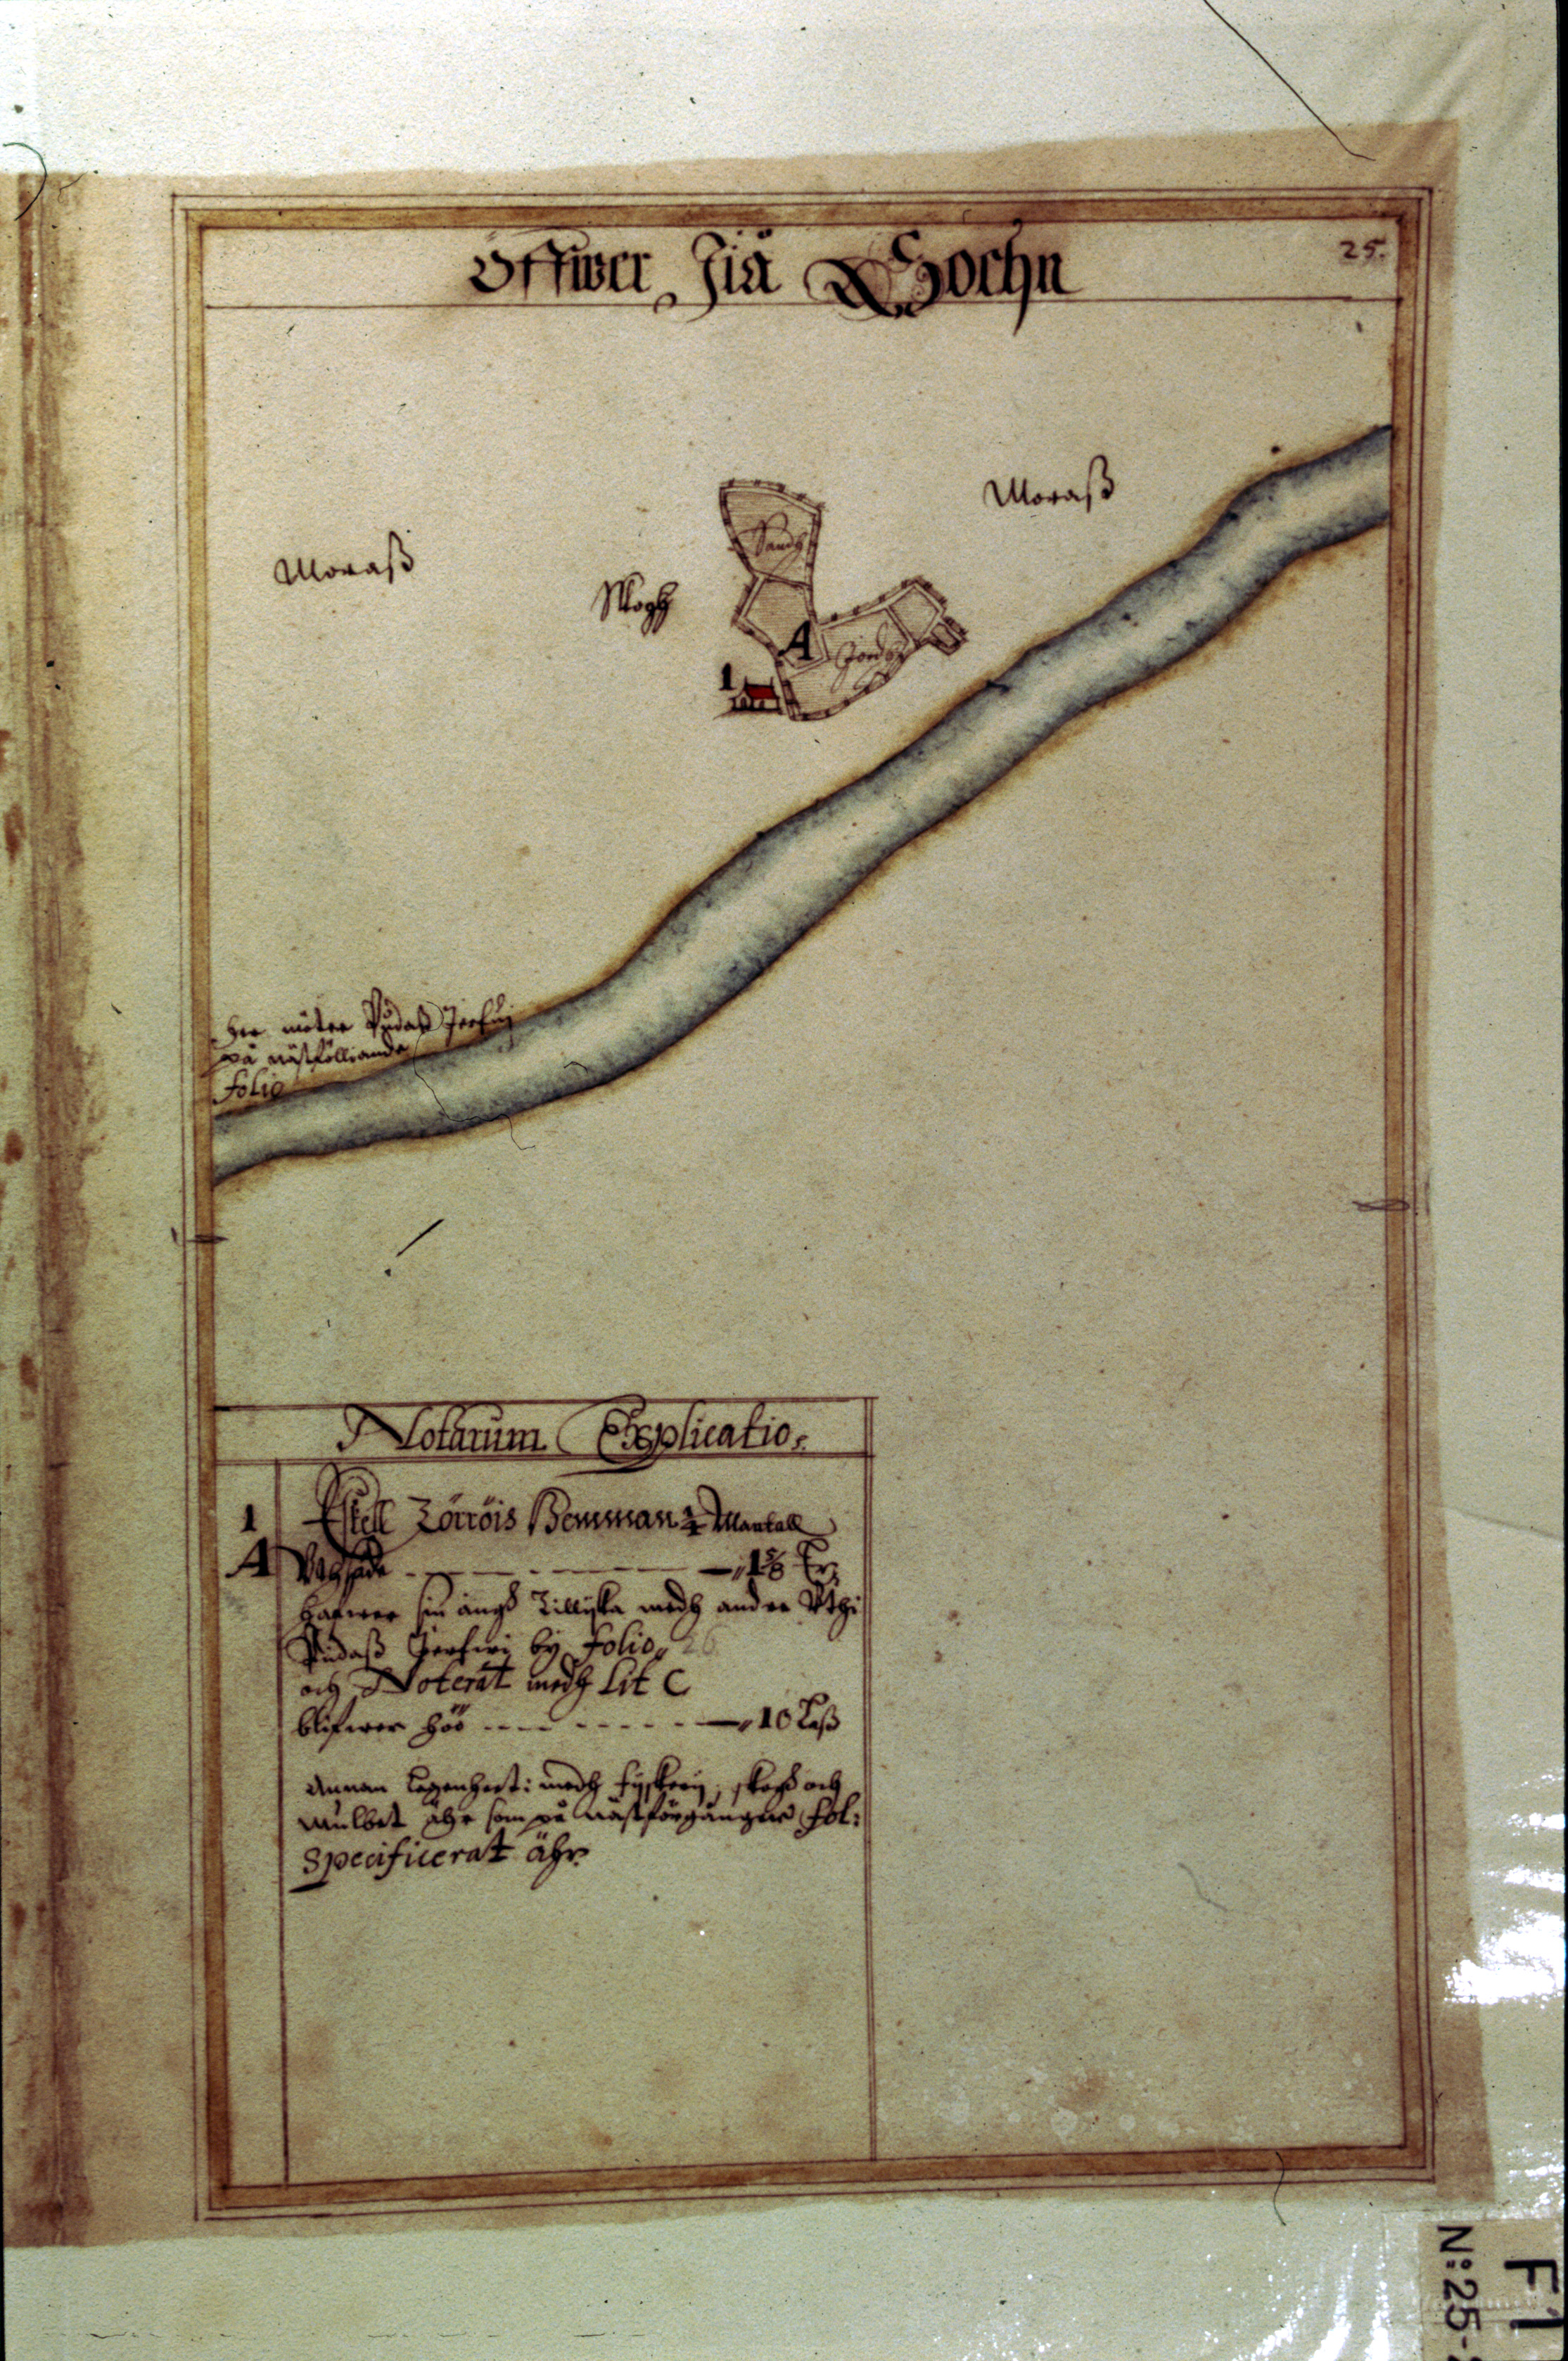 Öffwer Jiä Sochn
25.
Moraß
Moraß
Skogh
Sandh
A
Jordh
1
Her möter Pudaß Jerfwi
på nästfölliande
folio
Notarum Explicatio.
1 Eskell Zörröis Hemman ¼ Mantall
A Vthsäde - - - - 1 5/8 Tr;
Hafwer sin ängh Tillÿka medh andre Vthi
Pudaß Jerfwi bÿ folio 26
och Noterat medh Lit C
blifwer höö - - - - 10 Laß
Annan Lägenheet: medh fÿskerÿ, skogh och
Mulbet ähr som på nästförgångne fol:
Specificerat ähr.
F1
N:25-